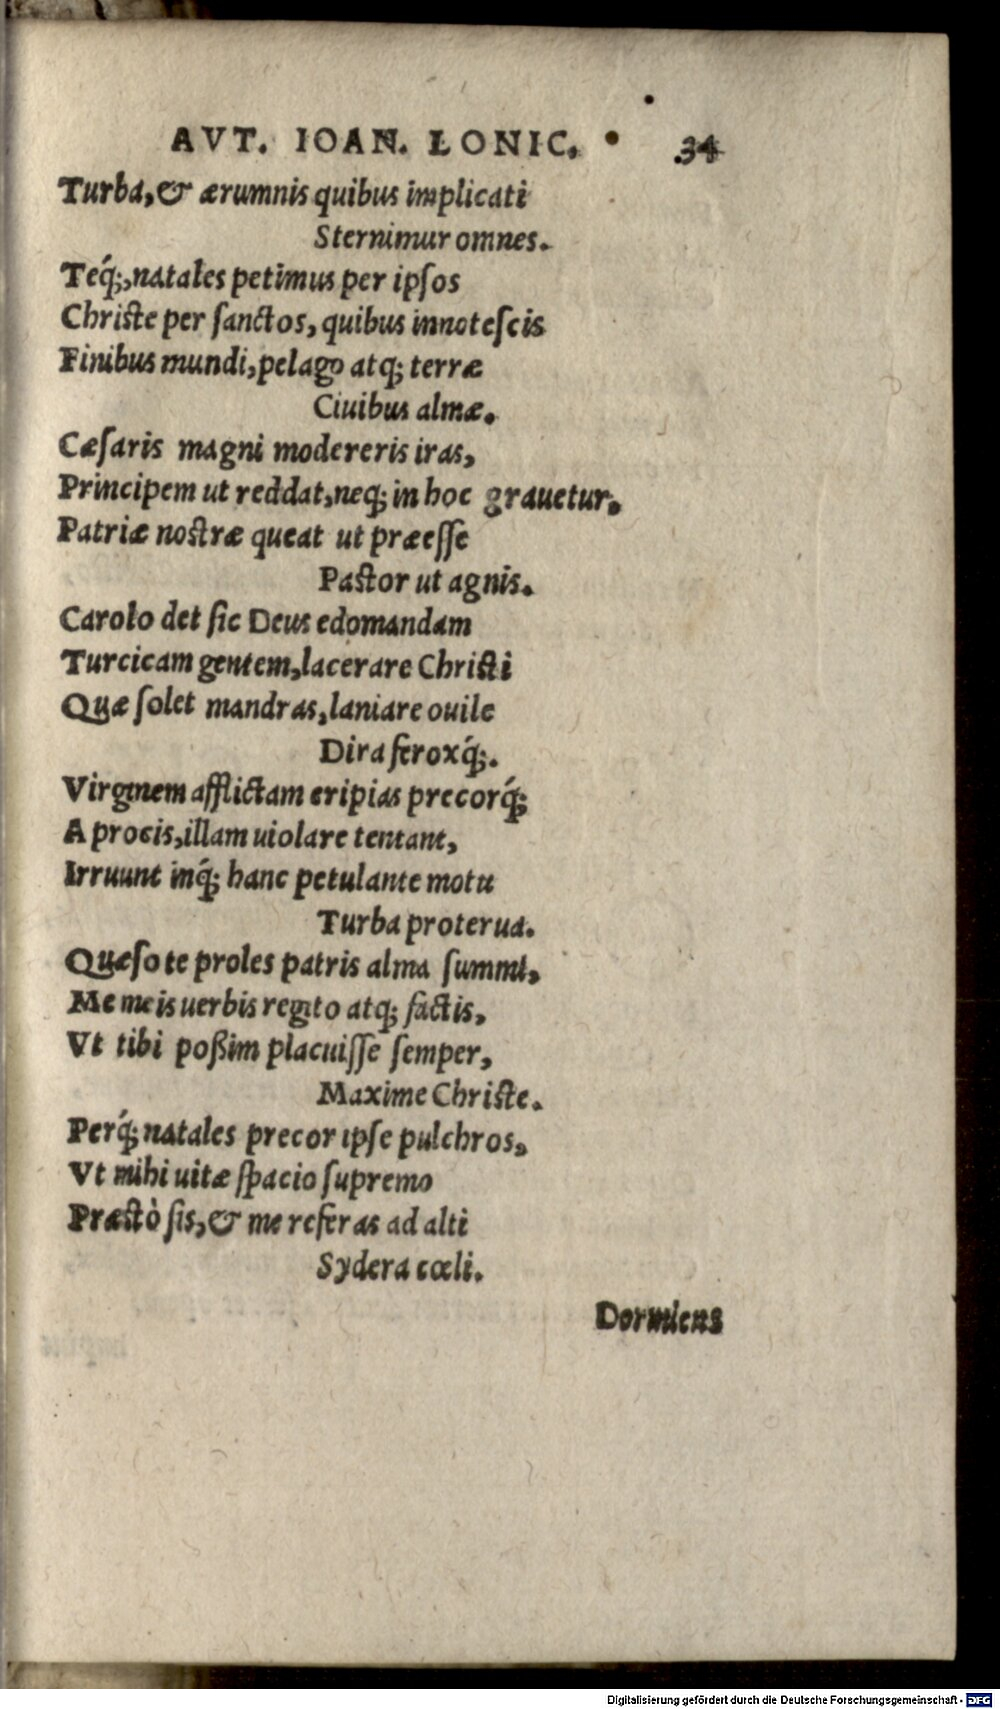 AVT. IOAN. LONIC. 34
Turba, & ærumnis quibus implicati
Sternimur omnes.
Teq́;, natales petimus per ipſos
Chriſte per ſanctos, quibus innoteſcis
Finibus mundi, pelago atq; terræ
Ciuibus almæ.
Cæſaris magni modereris iras,
Principem ut reddat, neq; in hoc grauetur,
Patriæ noſtræ queat ut præeſſe
Paſtor ut agnis.
Carolo det ſic Deus edomandam
Turcicam gentem, lacerare Chriſti
Quæ ſolet mandras, laniare ouile
Dira feroxq́;.
Virginem afflictam eripias precorq́;
A procis, illam uiolare tentant,
Irruunt inq́; hanc petulante motu
Turba proterua.
Quæſo te proles patris alma ſummi,
Me meis uerbis regito atq; factis,
Vt tibi poßim placuiſſe ſemper,
Maxime Chriſte.
Perq́; natales precor ipſe pulchros,
Vt mihi uitæ ſpacio ſupremo
Præſtò ſis, & me referas ad alti
Sydera cœli.
Dormiens
Digitalisierung gefördert durch die Deutsche Forschungsgemeinschaft - DFG